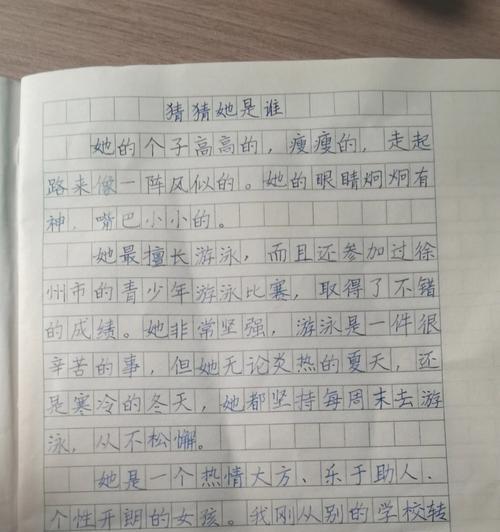 猜猜她是谁
她的个子高高的，瘦瘦的，走起
路来像一阵风似的。她的眼睛炯炯有
神，嘴巴小小的。
她最擅长游泳，而且还参加过徐
州市的青少年游泳比赛，取得了不错
的成绩。她非常坚强，游泳是一件很
辛苦的事，但她无论炎热的夏天，还
是寒冷的冬天，她都坚持每周末去游
泳，从不松懈。
她是一个热情大方、乐于助人、
个性开朗的女孩。我刚从别的学校转